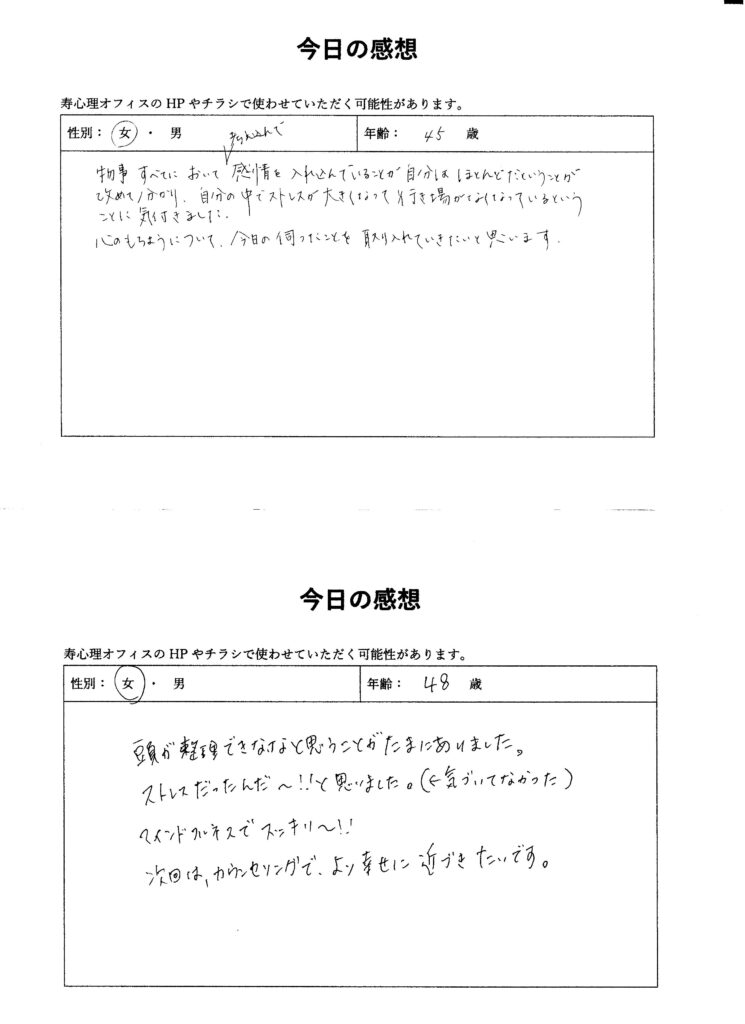 今日の感想
寿心理オフィスの HP やチラシで使わせていただく可能性があります。
性別： 女 ・ 男 年齢： 45 歳
考え込んで
物事 すべてに おいて 感情を 入れ込んでいることが 自分は ほとんどだということが
改めて分かり、自分の中でストレスが大きくなって 行き場がなくなっているという
ことに 気付きました。
心のもちようについて、今日の伺ったことを 取り入れていきたいと思います。
今日の感想
寿心理オフィスの HP やチラシで使わせていただく可能性があります。
性別： 女 ・ 男 年齢： 48 歳
頭が整理できなけなと思うことがたまにありました。
ストレスだったんだ～!!と思いました。(←気づいてなかった)
マインドフルネスでスッキリ～!!
次回は、カウンセリングで、より幸せに近づきたいです。